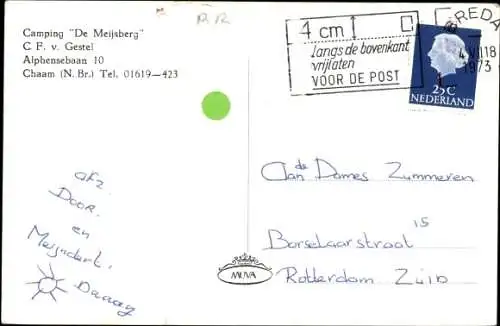 Camping "De Meijsberg"
C. F. v. Gestel
Alphensebaan 10
Chaam (N. Br.) Tel. 01619-423
4 cm
langs de bovenkant
vrijlaten
VOOR DE POST
BREDA
1973
25C
NEDERLAND
afz.
Door.
en
Meyndert.
Daaag
Aan de Dames Zummeren
Borselaarstraat 15
Rotterdam Zuid
MUVA